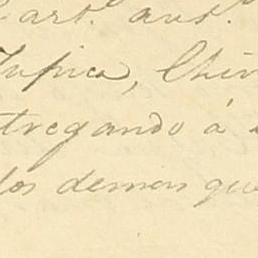 art.º aut.º
Tupica, Chiri
tregando á
los demas que